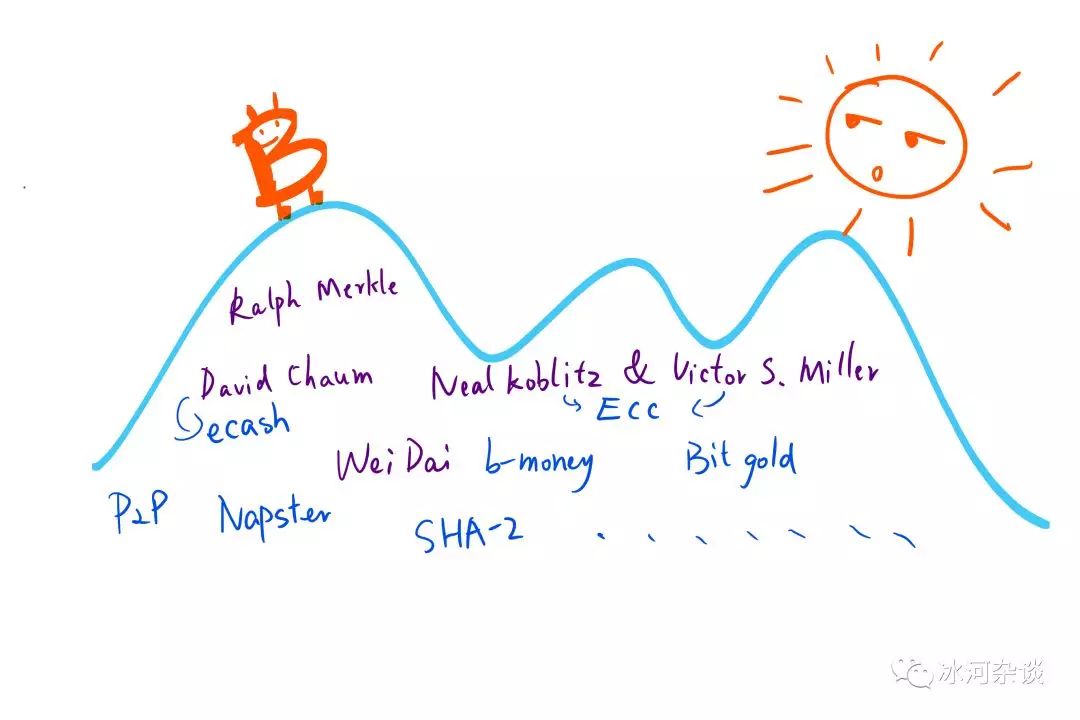 B
Ralph Merkle
David Chaum
Neal Koblitz & Victor S. Miller
ecash
ECC
Wei Dai b-money Bit gold
P2P Napster
SHA-2 . . . . . . .
冰河杂谈